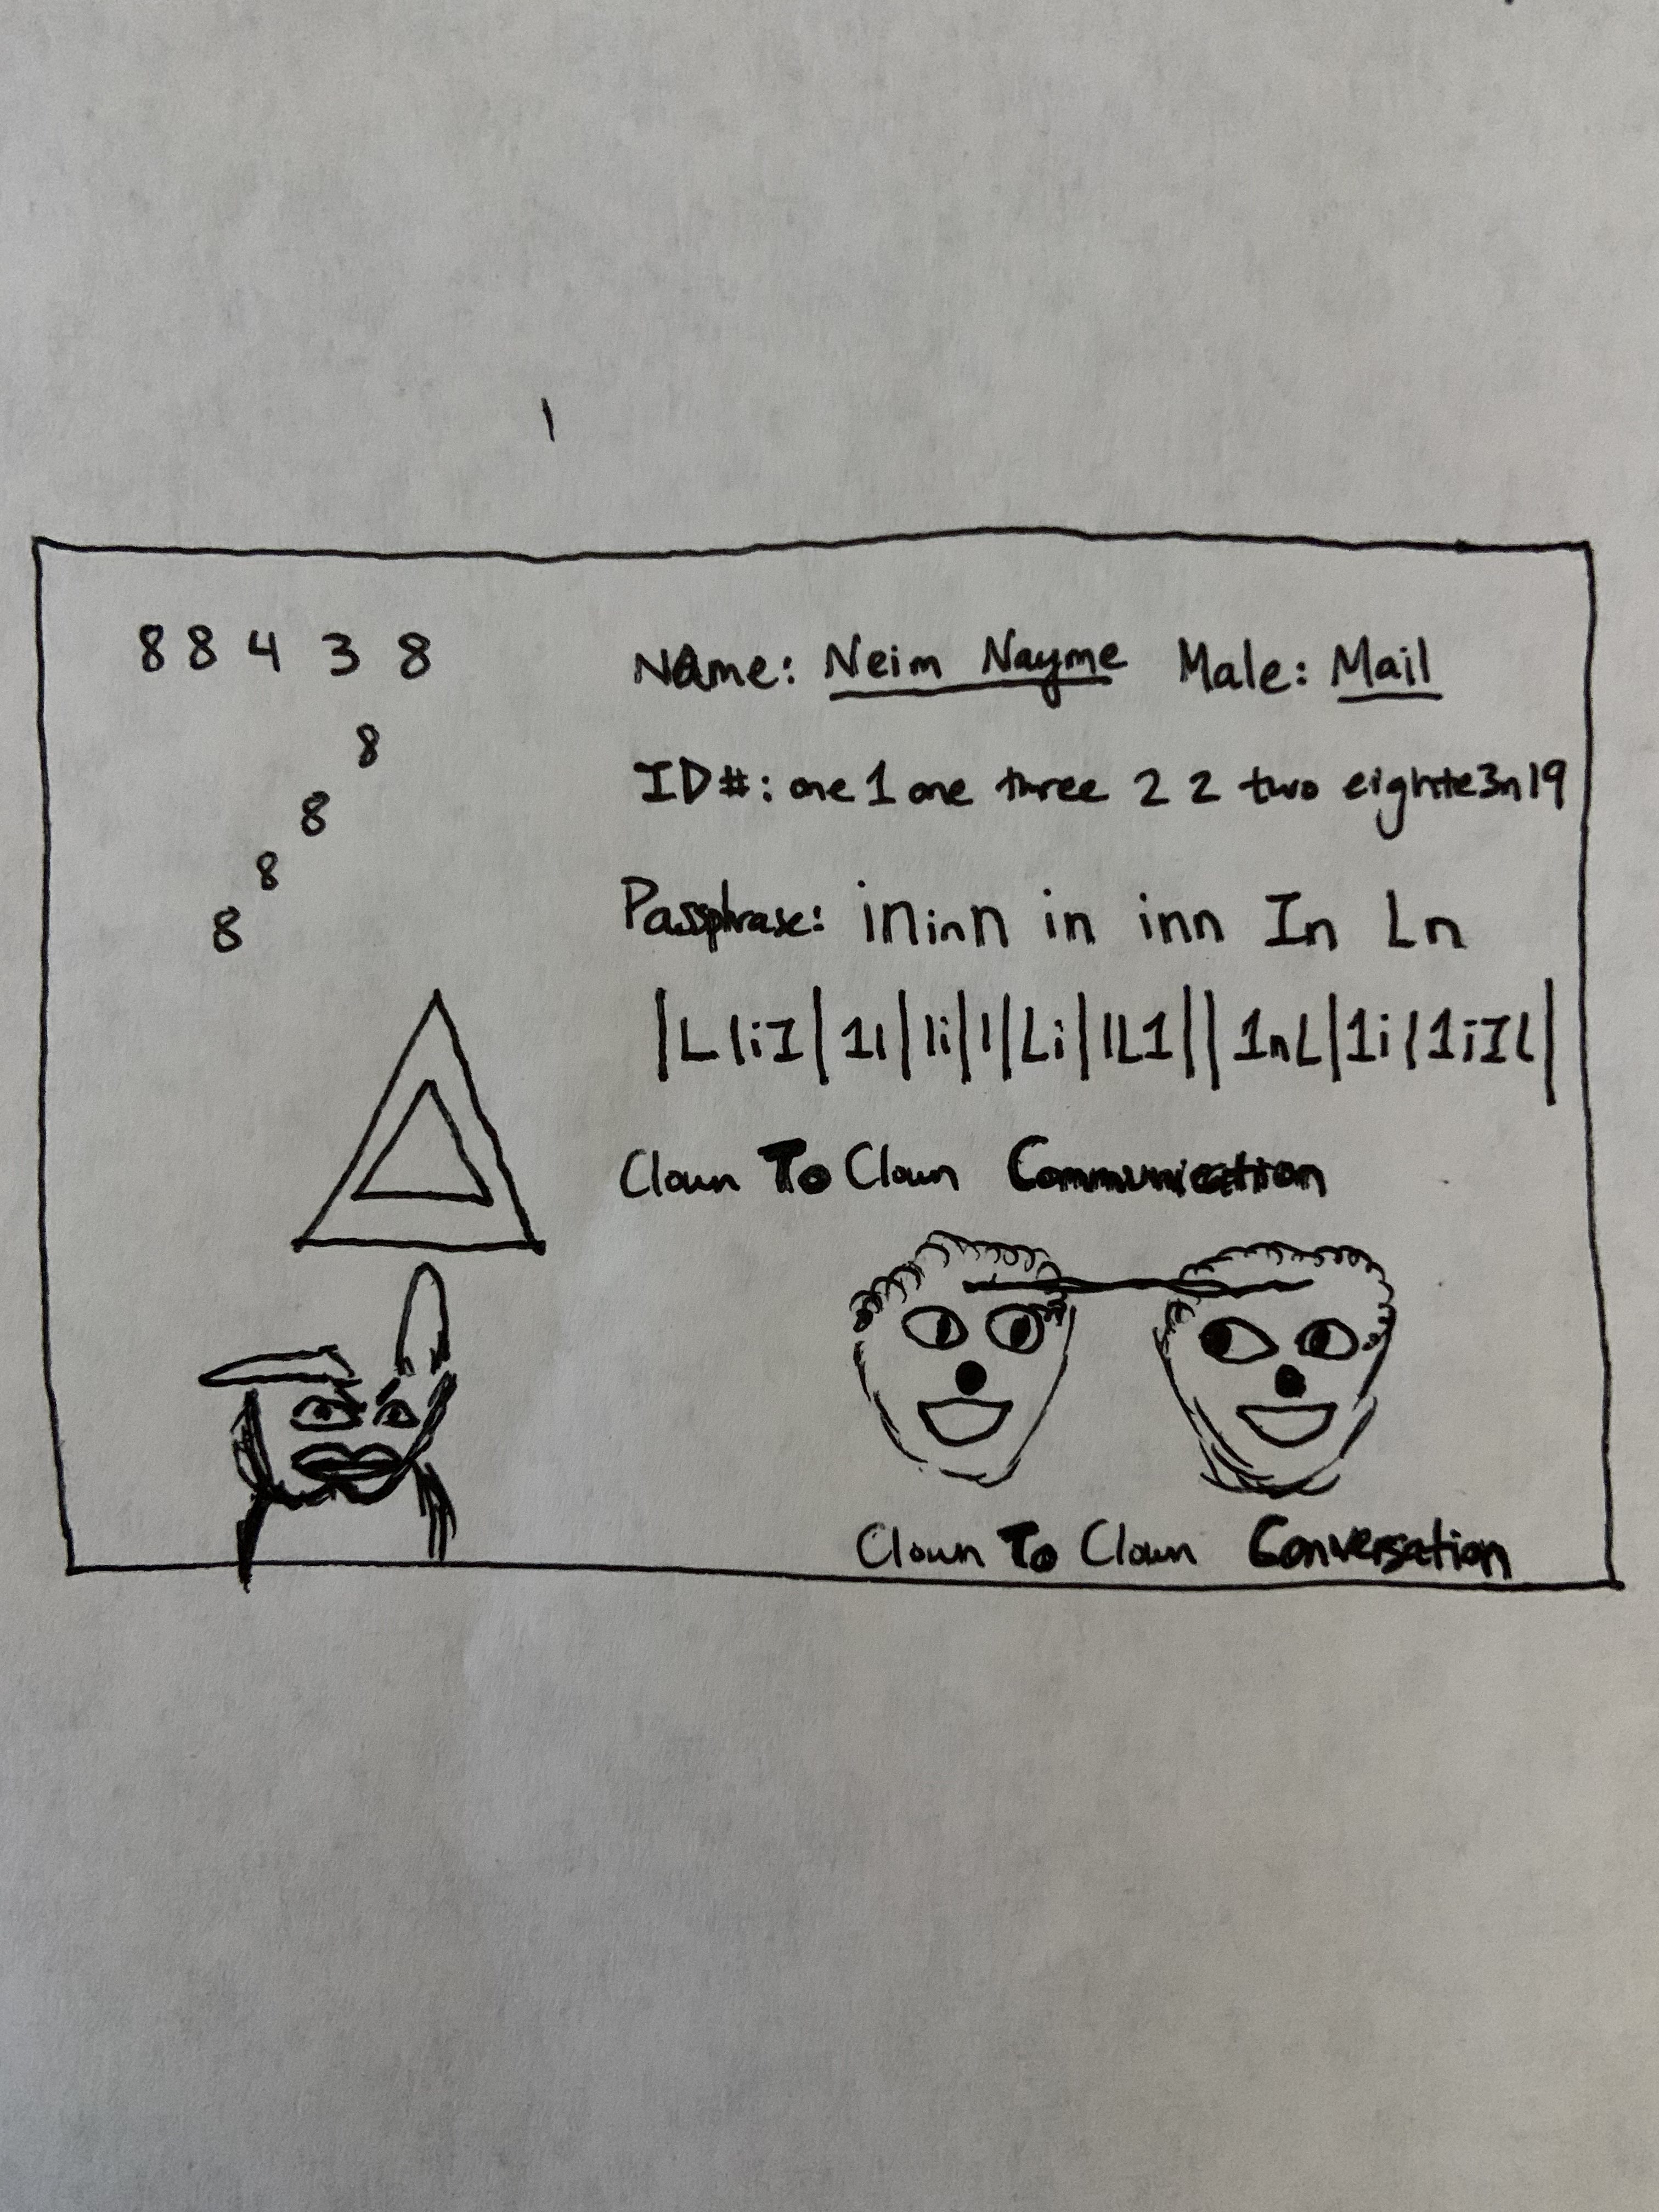 88438
8
8
8
8
Name: Neim Nayme Male: Mail
ID#: one 1 one three 2 2 two eighte3n19
Passphrase: ininn in inn In Ln
|LliI|1l|li|l|Li|lL1||1nL|1i|1iIl|
Clown To Clown Communication
Clown To Clown Conversation